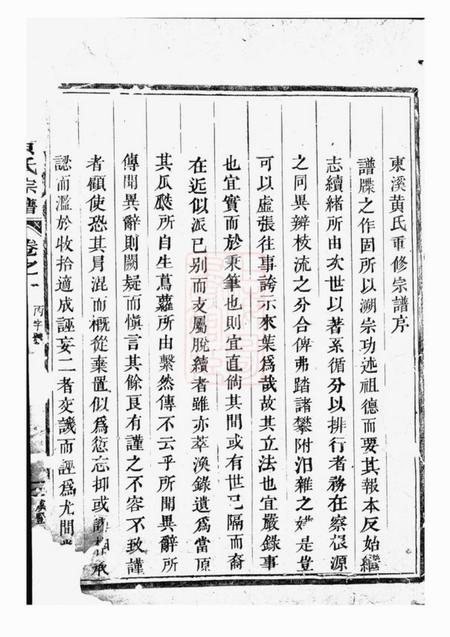 東溪黄氏重修宗譜序
譜牒之作固所以溯宗功述祖德而要其報本反始繼
志續緒所由次世以著系循分以排行者務在察根源
之同異辨枝流之分合俾弗踏諸攀附汨雜之是豈
可以虚張往事誇示來葉爲哉故其立法也宜嚴錄事
也宜實而於秉筆也則宜直倘其間或有世已隔而裔
在近似派已别而支屬脫續者雖亦萃渙錄遺爲當原
其瓜瓞所自生蔦蘿所由繫然傳不云乎所聞異辭所
傳聞異辭則闕疑而愼言其餘良有謹之不容不致謹
者顧使恐其冐混而概從棄置似爲愆忘抑或承
認而濫於收拾適成誣妄二者交譏而誣爲尤間
氏宗譜
卷之一
丙字號